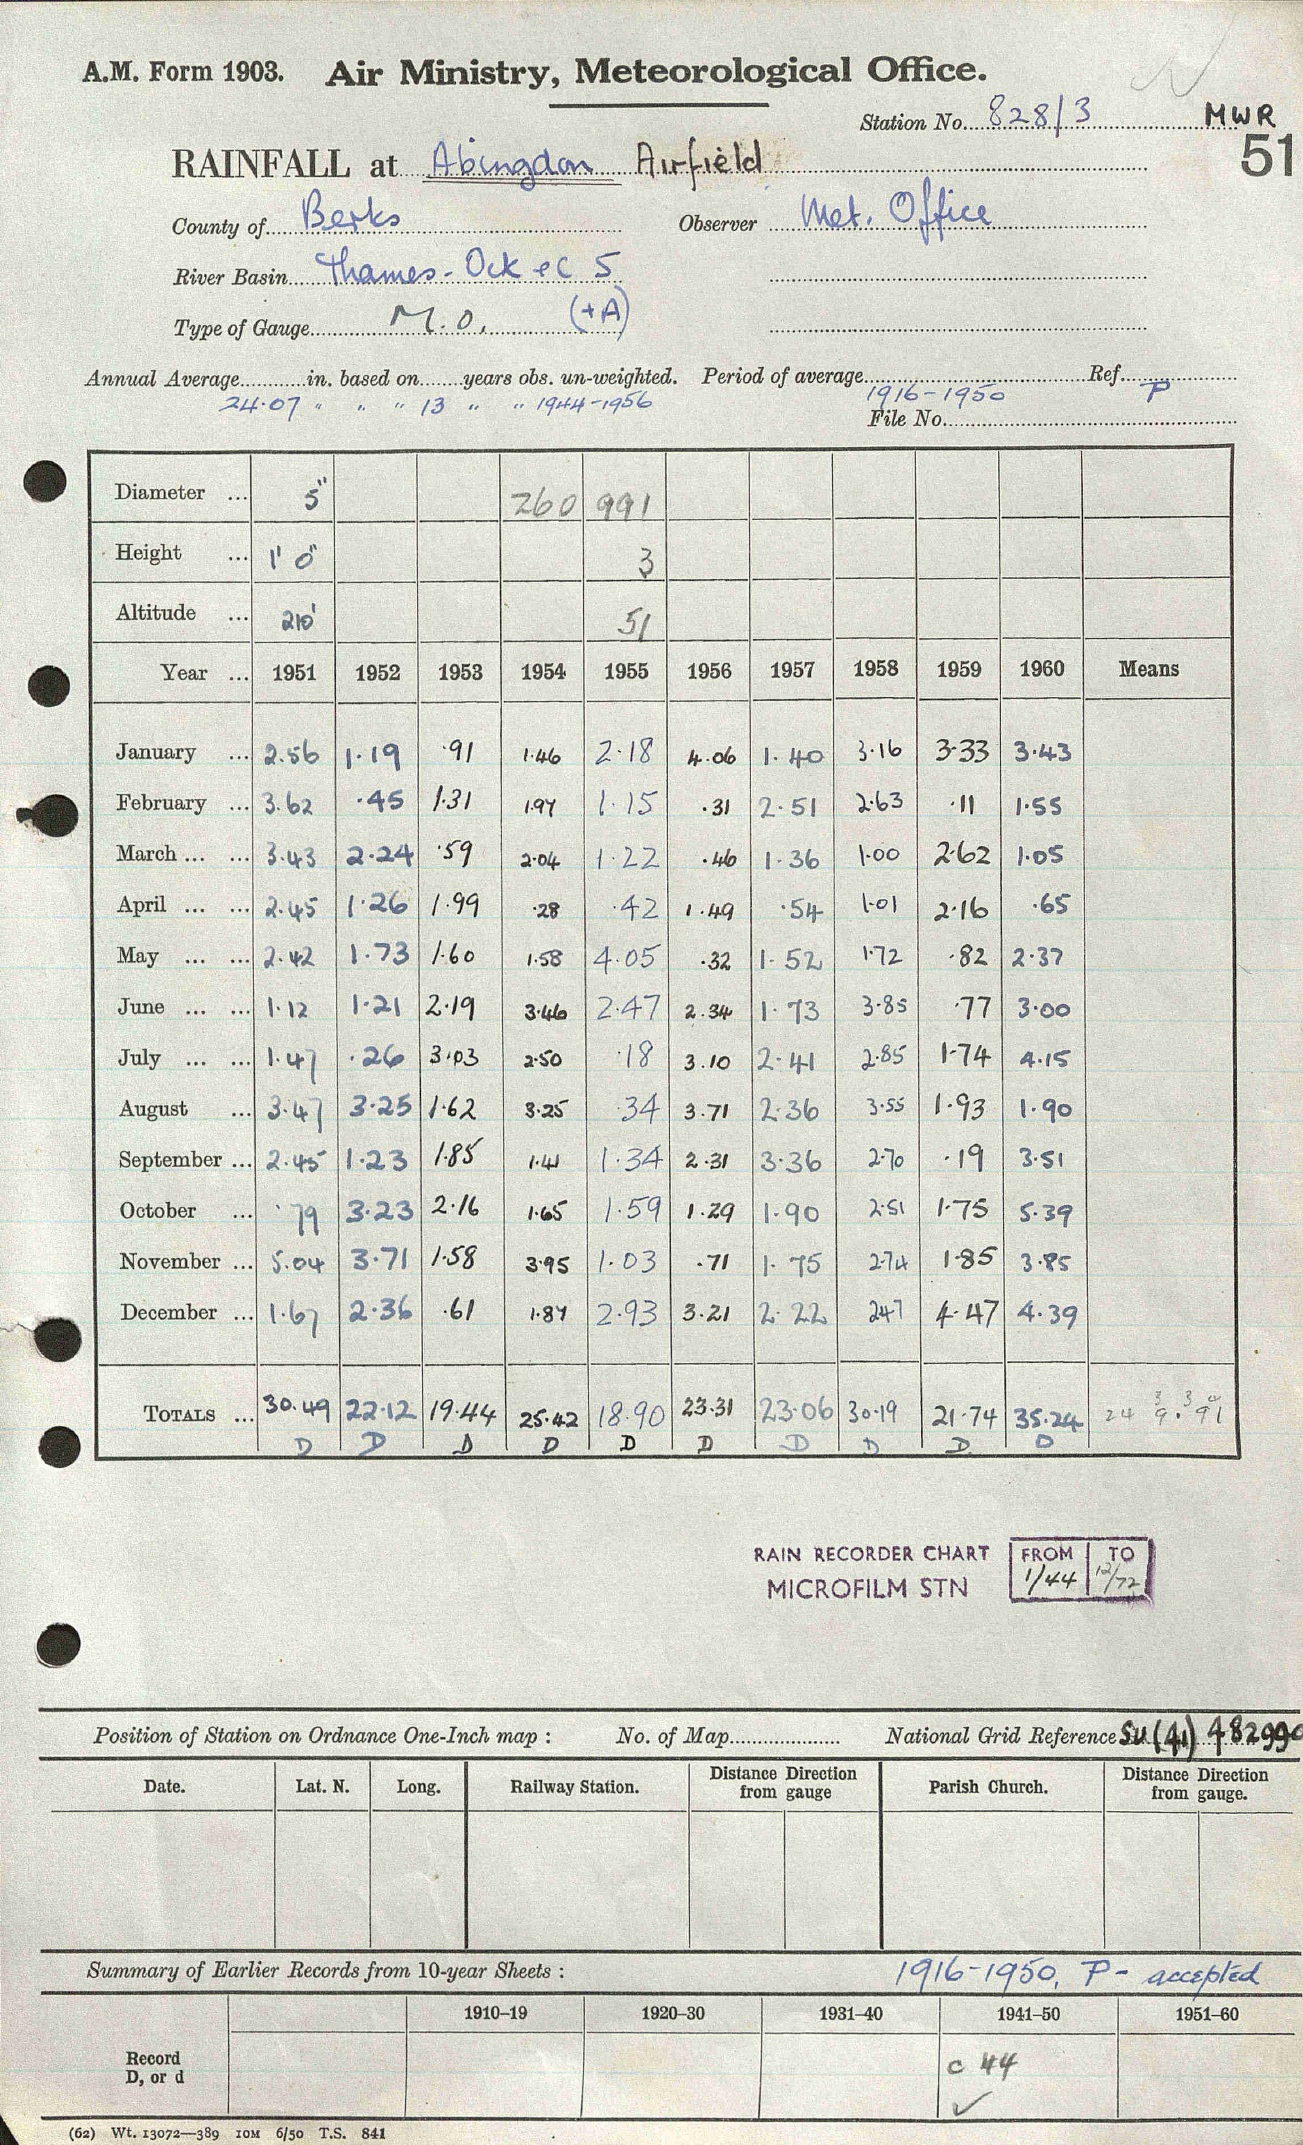 A.M. Form 1903. Air Ministry, Meteorological Office.
Station No. 828/3 MWR
51
RAINFALL at Abingdon Airfield
County of Berks Observer Met. Office
River Basin Thames - Ock &c 5
Type of Gauge M.O. (+A)
Annual Average in. based on years obs. un-weighted. Period of average 1916-1950 Ref. P
24.07 " " " 13 " " 1944-1956
File No.
Diameter ... 5" 260 991
Height ... 1' 0" 3
Altitude ... 210' 51
Year ... 1951 1952 1953 1954 1955 1956 1957 1958 1959 1960 Means
January ... 2.56 1.19 .91 1.46 2.18 4.06 1.40 3.16 3.33 3.43
February ... 3.62 .45 1.31 1.97 1.15 .31 2.51 2.63 .11 1.55
March ... ... 3.43 2.24 .59 2.04 1.22 .46 1.36 1.00 2.62 1.05
April ... ... 2.45 1.26 1.99 .28 .42 1.49 .54 1.01 2.16 .65
May ... ... 2.42 1.73 1.60 1.58 4.05 .32 1.52 1.72 .82 2.37
June ... ... 1.12 1.21 2.19 3.46 2.47 2.34 1.73 3.85 .77 3.00
July ... ... 1.47 .26 3.03 2.50 .18 3.10 2.41 2.85 1.74 4.15
August ... 3.47 3.25 1.62 3.25 .34 3.71 2.36 3.55 1.93 1.90
September ... 2.45 1.23 1.85 1.41 1.34 2.31 3.36 2.70 .19 3.51
October ... .79 3.23 2.16 1.65 1.59 1.29 1.90 2.51 1.75 5.39
November ... 5.04 3.71 1.58 3.95 1.03 .71 1.75 2.74 1.85 3.85
December ... 1.67 2.36 .61 1.87 2.93 3.21 2.22 2.47 4.47 4.39
TOTALS ... 30.49 22.12 19.44 25.42 18.90 23.31 23.06 30.19 21.74 35.24 24 9.91
D D D D D D D D D D
RAIN RECORDER CHART FROM TO
MICROFILM STN 1/44 12/72
Position of Station on Ordnance One-Inch map : No. of Map National Grid Reference SU (41) 482990
Date. Lat. N. Long. Railway Station. Distance from gauge Direction Parish Church. Distance from gauge. Direction
Summary of Earlier Records from 10-year Sheets : 1916-1950, P - accepted
1910–19 1920–30 1931–40 1941–50 1951–60
Record
D, or d
c 44
✓
(62) Wt. 13072—389 10M 6/50 T.S. 841